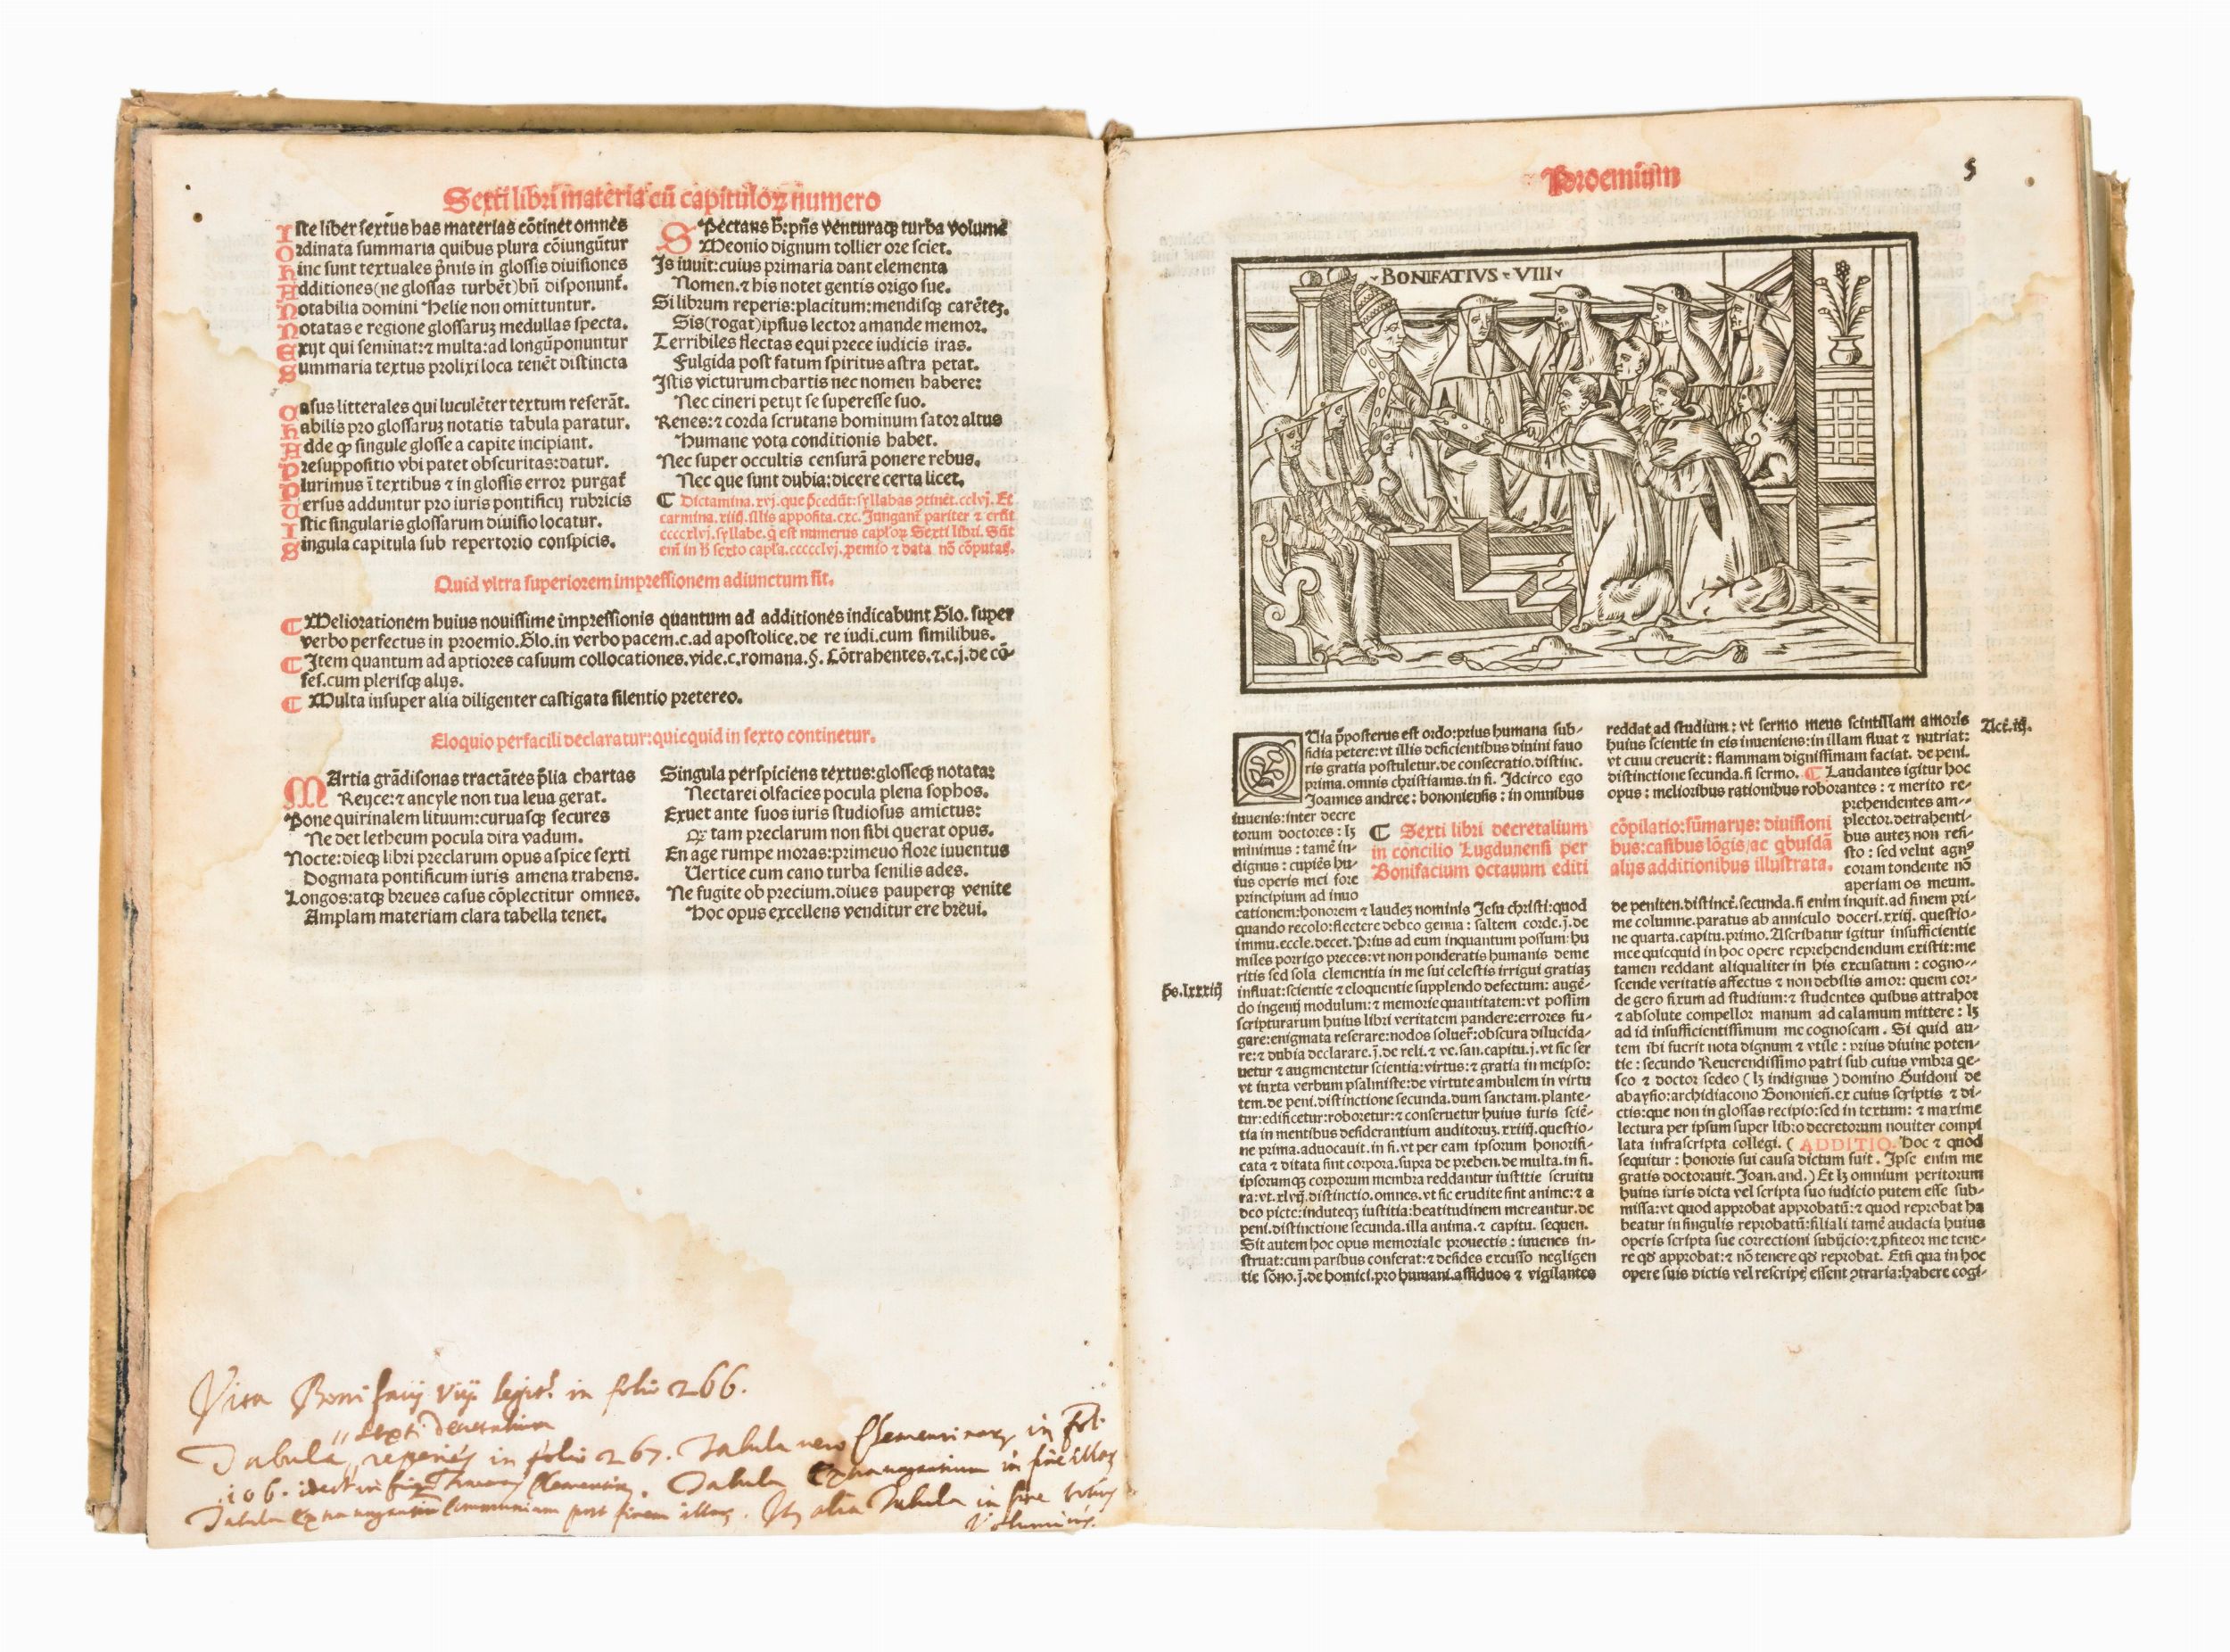 Sexti libri materia cū capituloꝝ numero
Iste liber sextus has materias cōtinet omnes
Ordinata summaria quibus plura cōiungūtur
Hinc sunt textuales p̄mis in glossis diuisiones
Additiones(ne glossas turbēt)bn̄ disponunt̄.
Notabilia domini Helie non omittuntur.
Notatas e regione glossaruꝫ medullas specta.
Exijt qui seminat:⁊ multa:ad longūponuntur
Summaria textus prolixi loca tenēt distincta
Casus litterales qui luculēter textum referāt.
Habilis pro glossaruꝫ notatis tabula paratur.
Adde ꝙ singule glosse a capite incipiant.
Presuppositio vbi patet obscuritas:datur.
Plurimus ī textibus ⁊ in glossis error purgat̄
Versus adduntur pro iuris pontificij rubricis
Istic singularis glossarum diuisio locatur.
Singula capitula sub repertorio conspicis.
SPectans h̄:pn̄s venturaqꝫ turba volumē
Meonio dignum tollier ore sciet.
Is iuuit:cuius primaria dant elementa
Nomen.⁊ his notet gentis origo sue.
Si librum reperis:placitum:mendisqꝫ carēteꝫ.
Sis(rogat)ipsius lector amande memor.
Terribiles flectas equi prece iudicis iras.
Fulgida post fatum spiritus astra petat.
Istis victurum chartis nec nomen habere:
Nec cineri petijt se superesse suo.
Renes:⁊ corda scrutans hominum sator altus
Humane vota conditionis habet.
Nec super occultis censurā ponere rebus.
Nec que sunt dubia:dicere certa licet.
¶ Dictamina.xvj.que p̄cedūt:syllabas ꝯtinēt.cclvj. Et
carmina.xiiij.illis apposita.cxc. Jungant̄ pariter ⁊ erūt
ccccxlvj.syllabe.q̄ est numerus cap̄loꝝ Sexti libri. Sūt
em̄ in h̄ sexto cap̄la.ccccclvj.ꝓemio ⁊ data nō cōputaꝭ.
Quid vltra superiorem impressionem adiunctum sit.
¶ Meliorationem huius nouissime impressionis quantum ad additiones indicabunt Glo. super
verbo perfectus in proemio.Glo.in verbo pacem.c.ad apostolice.de re iudi.cum similibus.
¶ Item quantum ad aptiores casuum collocationes.vide.c.romana.§. Cōtrahentes.⁊.c.j.de cō-
fes.cum plerisqꝫ alijs.
¶ Multa insuper alia diligenter castigata silentio pretereo.
Eloquio perfacili declaratur:quicquid in sexto continetur.
MArtia grādisonas tractātes p̄lia chartas
Reijce:⁊ ancyle non tua leua gerat.
Pone quirinalem lituum:curuasqꝫ secures
Ne det letheum pocula dira vadum.
Nocte:dieqꝫ libri preclarum opus aspice sexti
Dogmata pontificum iuris amena trahens.
Longos:atqꝫ breues casus cōplectitur omnes.
Amplam materiam clara tabella tenet.
Singula perspiciens textus:glosseqꝫ notata:
Nectarei olfacies pocula plena sophos.
Exuet ante suos iuris studiosus amictus:
Qꝫ tam preclarum non sibi querat opus.
En age rumpe moras:primeuo flore iuuentus
Vertice cum cano turba senilis ades.
Ne fugite ob precium.diues pauperqꝫ venite
Hoc opus excellens venditur ere breui.
Vita Bonifacij viij legitr̄ in folio 266.
Sexti Decretalium
Tabula reperies in folio 267. Tabula vero Clementinarꝫ in fol.
106. idest in fine Clementin. Tabula Extravagantium in fine illaꝝ
Tabula Extravagantiū Communium post finem illarꝫ. Itꝫ alia Tabula in fine totius
Voluminis.
Proemium
5
BONIFATIVS VIII
QVia p̄posterus est ordo:prius humana sub-
sidia petere:vt illis deficientibus diuini fauo
ris gratia postuletur.de consecratio.distinc.
prima.omnis christianus.in fi. Idcirco ego
Joannes andree: bononiensis: in omnibus
iuuenis:inter decre
torum doctores: lꝫ
minimus: tamē in-
dignus: cupiēs hu-
ius operis mei fore
principium ad inuo
cationem:honorem ⁊ laudeꝫ nominis Jesu christi:quod
quando recolo:flectere debeo genua: saltem corde.j.de
immu.eccle.decet. Prius ad eum inquantum possum: hu
miles porrigo preces:vt non ponderatis humanis deme
ritis sed sola clementia in me sui celestis irrigui gratiaꝫ
influat:scientie ⁊ eloquentie supplendo defectum: augē-
do ingenij modulum:⁊ memorie quantitatem:vt possim
scripturarum huius libri veritatem pandere:errores fu-
gare:enigmata reserare:nodos soluer̄:obscura dilucida-
re:⁊ dubia declarare.j.de reli.⁊ ve.san.capitu.j.vt sic ser
uetur ⁊ augmentetur scientia:virtus:⁊ gratia in meipso:
vt iuxta verbum psalmiste:de virtute ambulem in virtu
tem.de peni.distinctione secunda.dum sanctam.plante-
tur:edificetur:roboretur:⁊ conseruetur huius iuris sciē-
tia in mentibus desiderantium auditoruꝫ.xxiiij.questio-
ne prima.aduocauit.in fi.vt per eam ipsorum honorifi-
cata ⁊ ditata sint corpora.supra de preben.de multa.in fi.
ipsorumqꝫ corporum membra reddantur iustitie seruitu
ra:vt.xlvij.distinctio.omnes.vt sic erudite sint anime:⁊ a
deo picte:induteqꝫ iustitia:beatitudinem mereantur.de
peni.distinctione secunda.illa anima.⁊ capitu. sequen.
Sit autem hoc opus memoriale prouectis: iuuenes in-
struat:cum paribus conferat:⁊ desides excusso negligen
tie sōno.j.de homici.pro humani.assiduos ⁊ vigilantes
p̄s.lxxxiij
¶ Sexti libri decretalium
in concilio Lugdunensi per
Bonifacium octauum editi
cōpilatio:sūmarijs: diuisioni
bus:casibus lōgis/ac qbusdā
alijs additionibus illustrata.
reddat ad studium: vt sermo meus scintillam amoris
huius scientie in eis inueniens:in illam fluat ⁊ nutriat:
vt cum creuerit: flammam dignissimam faciat. de peni.
distinctione secunda.si sermo. ¶ Laudantes igitur hoc
opus: melioribus rationibus roborantes: ⁊ merito re-
prehendentes am-
plector.detrahenti-
bus auteꝫ non resi-
sto: sed velut agnꝰ
coram tondente nō
aperiam os meum.
de peniten.distinct.secunda.si enim inquit.ad finem pri-
me columne.paratus ab anniculo doceri.xxiiij. questio-
ne quarta.capitu.primo. Ascribatur igitur insufficientie
mee quicquid in hoc opere reprehendendum existit:me
tamen reddant aliqualiter in his excusatum: cogno-
scende veritatis affectus ⁊ non debilis amor: quem cor-
de gero fixum ad studium:⁊ studentes quibus attrahor
⁊ absolute compellor manum ad calamum mittere: lꝫ
ad id insufficientissimum me cognoscam. Si quid au-
tem ibi fuerit nota dignum ⁊ vtile: prius diuine poten-
tie: secundo Reuerendissimo patri sub cuius vmbra qe-
sco ⁊ doctor sedeo (lꝫ indignus) domino Guidoni de
abaysio:archidiacono Bononien̄.ex cuius scriptis ⁊ di-
ctis:que non in glossas recipio:sed in textum: ⁊ maxime
lectura per ipsum super libro decretorum nouiter compi
lata infrascripta collegi. ( ADDITIO. Hoc ⁊ quod
sequitur: honoris sui causa dictum fuit. Ipse enim me
gratis doctorauit. Joan.and.) Et lꝫ omnium peritorum
huius iuris dicta vel scripta suo iudicio putem esse sub-
missa:vt quod approbat approbatū:⁊ quod reprobat ha
beatur in singulis reprobatū:filiali tamē audacia huius
operis scripta sue correctioni subijcio:⁊ ꝓfiteor me tene-
re qd̄ approbat:⁊ nō tenere qd̄ reprobat. Etsi qua in hoc
opere suis dictis vel rescriptꝭ essent ꝯtraria:habere cogi-
Act̄.iiij.